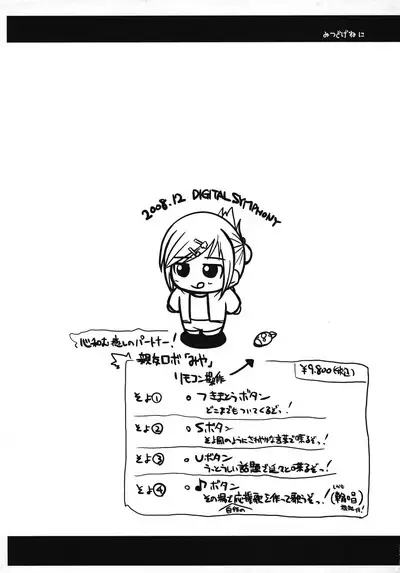 みつどげねに
2008.12 DIGITAL SYMPHONY
心和む癒しのパートナー!
親友ロボ「みや」
リモコン操作
¥9,800(税込)
その① つきまとうボタン
どこまでもついてくるぞっ!
その② Sボタン
その③ Uボタン
うっとうしい話題で延々と喋るぞっ!
その④ ♪ボタン
その場で応援歌を作って歌うぞっ!
自作の